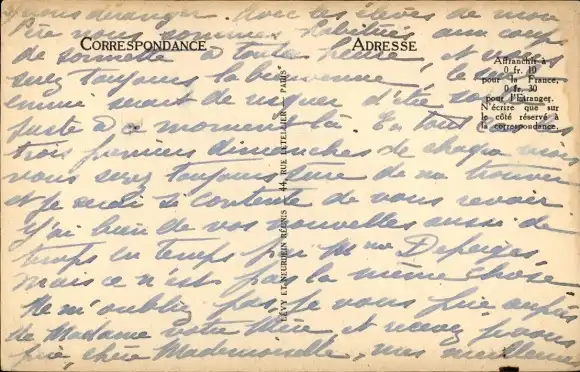 vous déranger. Avec les élèves de mon
Père nous sommes habitués aux coups
CORRESPONDANCE
ADRESSE
de sonnette à toute heure et vous
serez toujours la bienvenue, le seul
ennui serait de risquer d'être
juste à ce moment là. En tout cas les
trois premiers dimanches de chaque mois
vous serez toujours sûre de me trouver
et je serai si contente de vous revoir
J'ai bien de vos nouvelles aussi de
temps en temps par Mme
mais ce n'est pas la même chose
Ne m'oubliez pas je vous prie auprès
de Madame votre Mère et recevez je vous
prie, chère Mademoiselle, mes meilleurs
Affranchir à
0 fr. 10
pour la France,
0 fr. 30
pour l'Étranger.
N'écrire que sur
le côté réservé à
la correspondance.
LÉVY ET NEURDEIN RÉUNIS — 44, RUE LETELLIER — PARIS